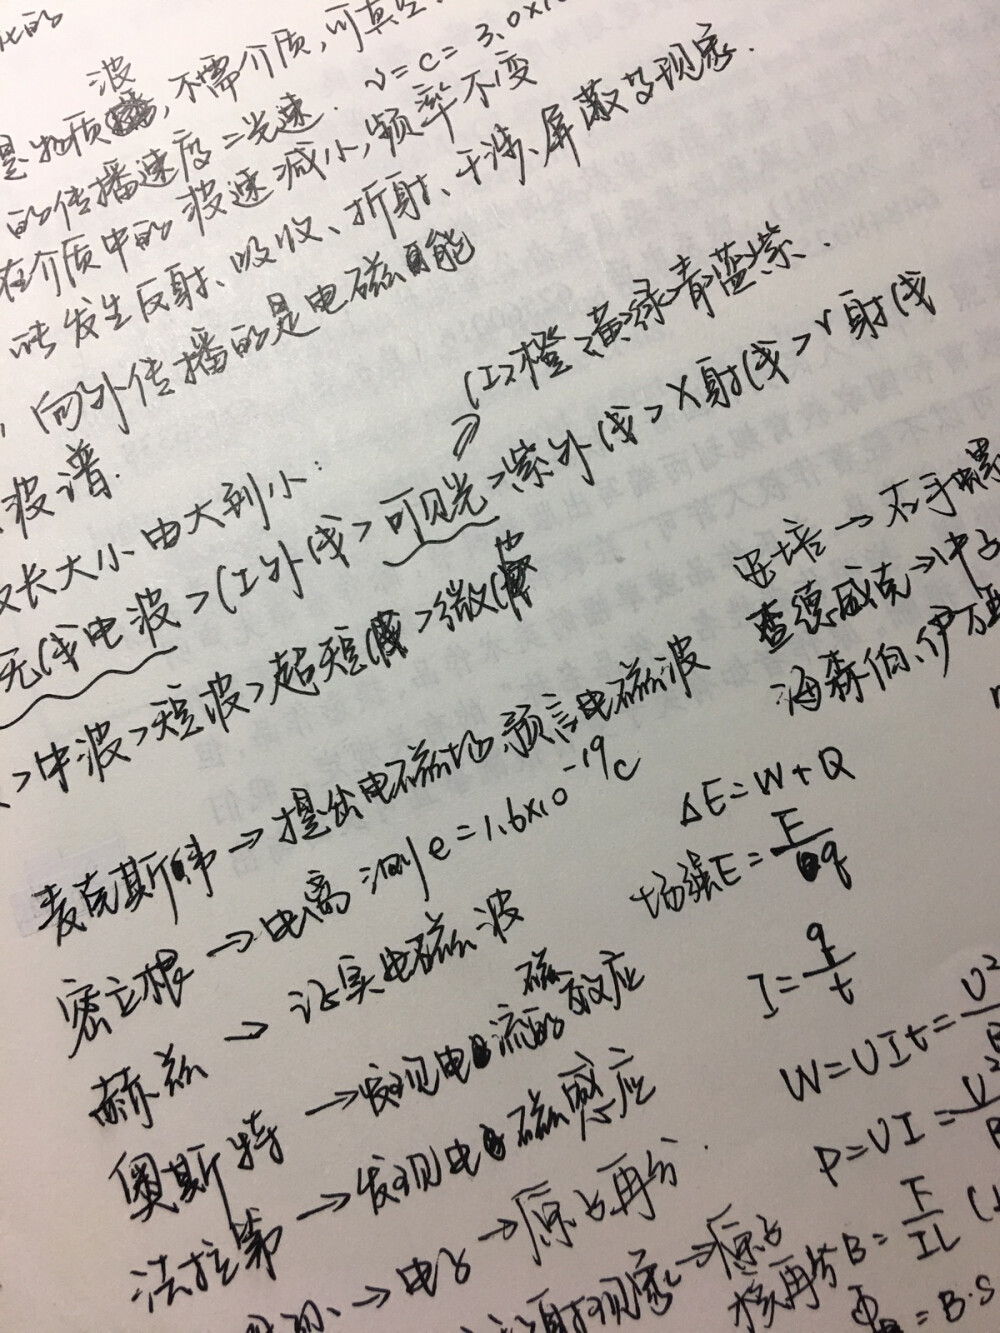 化的
波
是物质 ,不需介质,可真空
的传播速度=光速. v=c=3.0×10
在介质中的波速减小,频率不变
时发生反射、吸收、折射、干涉、屏蔽等现象.
,向外传播的是电磁能
波谱.
(红橙黄绿青蓝紫.
波长大小由大到小:
无线电波>红外线>可见光>紫外线>X射线>γ射线
>中波>短波>超短波>微波
麦克斯韦→提出电磁场,预言电磁波
密立根→电离测e=1.6×10⁻¹⁹C
赫兹→证实电磁波
奥斯特→发现电流的磁效应
法拉第→发现电磁感应
→电子→原子再分.
射现象→原子核再分
安培→右手螺
查德威克→中子
海森伯、伊万
ΔE=W+Q
场强E=F/q
I=q/t
W=UIt=U²
P=UI=U²
B=F/IL
Φ=B·S